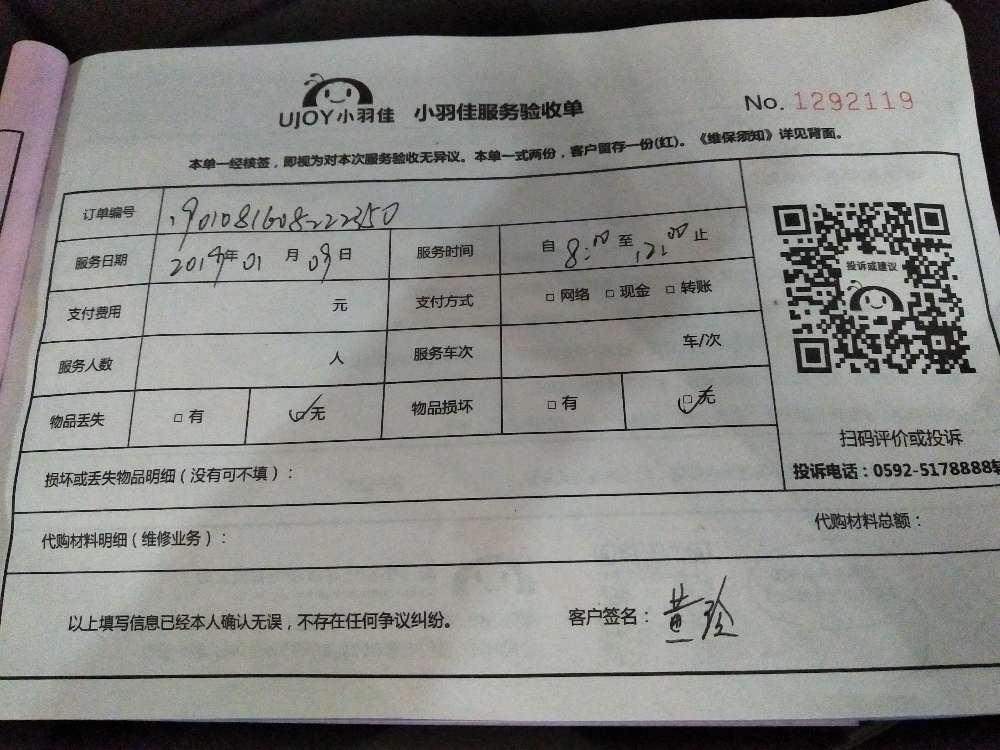 UJOY小羽佳 小羽佳服务验收单 No. 1292119
本单一经核签，即视为对本次服务验收无异议。本单一式两份，客户留存一份(红)。《维保须知》详见背面。
订单编号 1901081608222350
服务日期 2019年01月09日 服务时间 自8:00至12:00止
投诉或建议
支付费用 元 支付方式 □ 网络 □ 现金 □ 转账
服务人数 人 服务车次 车/次
物品丢失 □ 有 ☑ 无 物品损坏 □ 有 ☑ 无
扫码评价或投诉
投诉电话：0592-5178888转
损坏或丢失物品明细（没有可不填）：
代购材料明细（维修业务）： 代购材料总额：
以上填写信息已经本人确认无误，不存在任何争议纠纷。 客户签名：黄珍